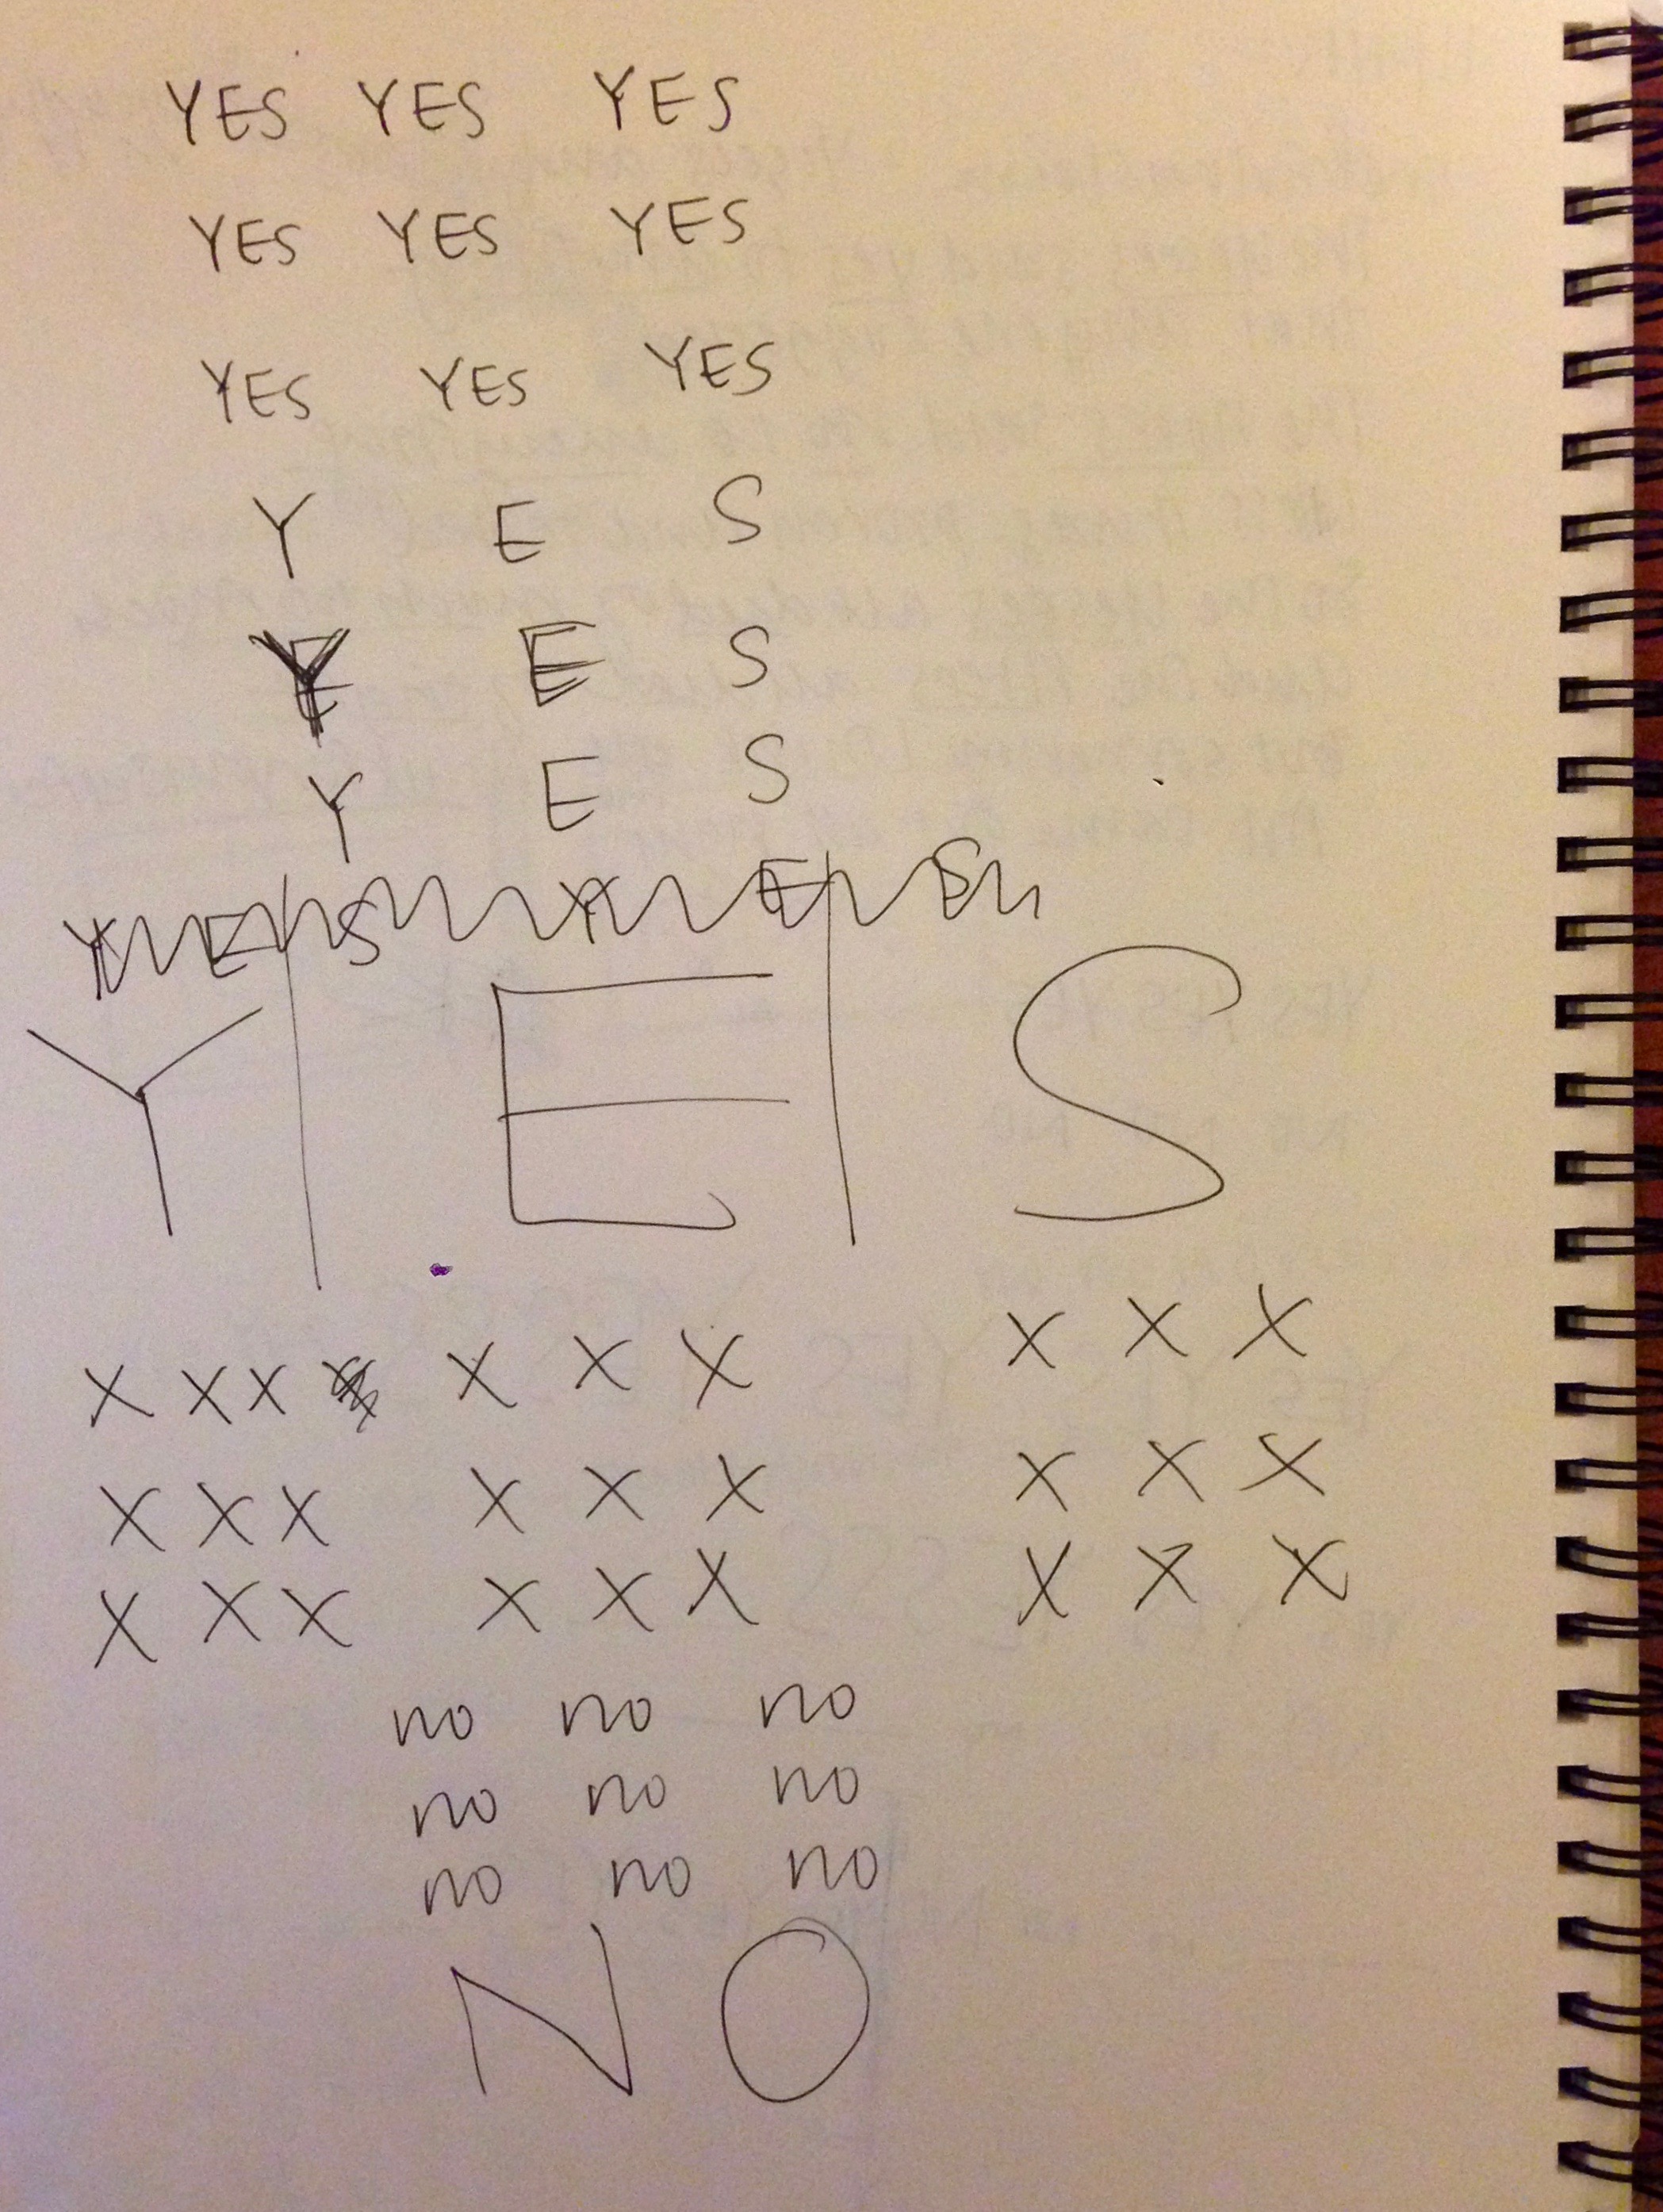 YES YES YES
YES YES YES
YES YES YES
Y E S
Y E S
Y E S
YES YES
Y E S
X X X X X X X X X
X X X X X X X X X
X X X X X X X X X
no no no
no no no
no no no
NO